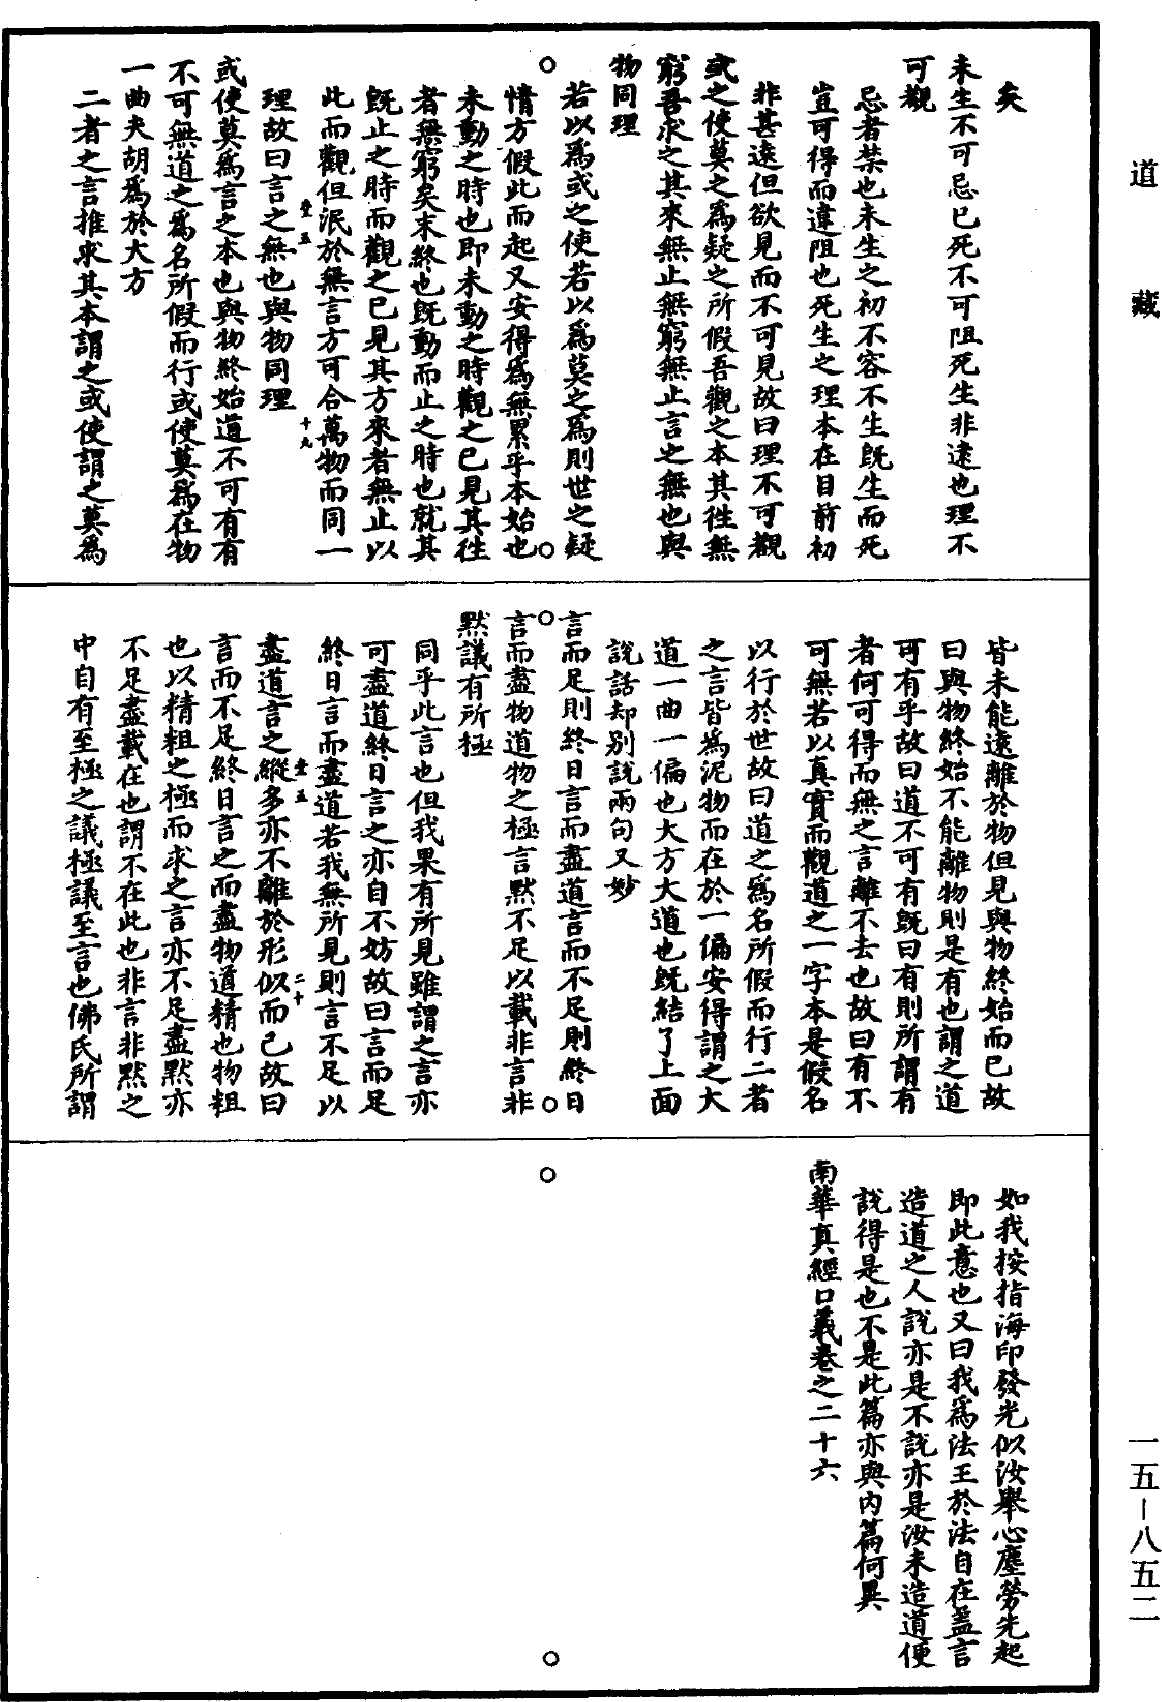 道藏
矣
未生不可忌已死不可阻死生非遠也理不
可觀
忌者禁也未生之初不容不生既生而死
豈可得而違阻也死生之理本在目前初
非甚遠但欲見而不可見故曰理不可觀
或之使莫之為疑之所假吾觀之本其徃無
窮吾求之其來無止無窮無止言之無也與
物同理
若以為或之使若以為莫之為則世之疑
情方假此而起又安得為無累乎本始也
未動之時也即未動之時觀之已見其徃
者無窮矣末終也既動而止之時也就其
既止之時而觀之已見其方來者無止以
此而觀但泯於無言方可合萬物而同一
壹五
十九
理故曰言之無也與物同理
或使莫為言之本也與物終始道不可有有
不可無道之為名所假而行或使莫為在物
一曲夫胡為於大方
二者之言推求其本謂之或使謂之莫為
皆未能遠離於物但見與物終始而已故
曰與物終始不能離物則是有也謂之道
可有乎故曰道不可有既曰有則所謂有
者何可得而無之言離不去也故曰有不
可無若以真實而觀道之一字本是假名
以行於世故曰道之為名所假而行二者
之言皆為泥物而在於一偏安得謂之大
道一曲一偏也大方大道也既結了上面
說話却別說兩句又妙
言而足則終日言而盡道言而不足則終日
言而盡物道物之極言默不足以載非言非
默議有所極
同乎此言也但我果有所見雖謂之言亦
可盡道終日言之亦自不妨故曰言而足
終日言而盡道若我無所見則言不足以
壹五
二十
盡道言之縱多亦不離於形似而已故曰
言而不足終日言之而盡物道精也物粗
也以精粗之極而求之言亦不足盡默亦
不足盡載在也謂不在此也非言非默之
中自有至極之議極議至言也佛氏所謂
如我按指海印發光似汝舉心塵勞先起
即此意也又曰我為法王於法自在蓋言
造道之人說亦是不說亦是汝未造道便
說得是也不是此篇亦與內篇何異
南華真經口義卷之二十六
一五－八五二